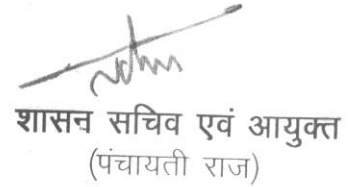 शासन सचिव एवं आयुक्त
(पंचायती राज)